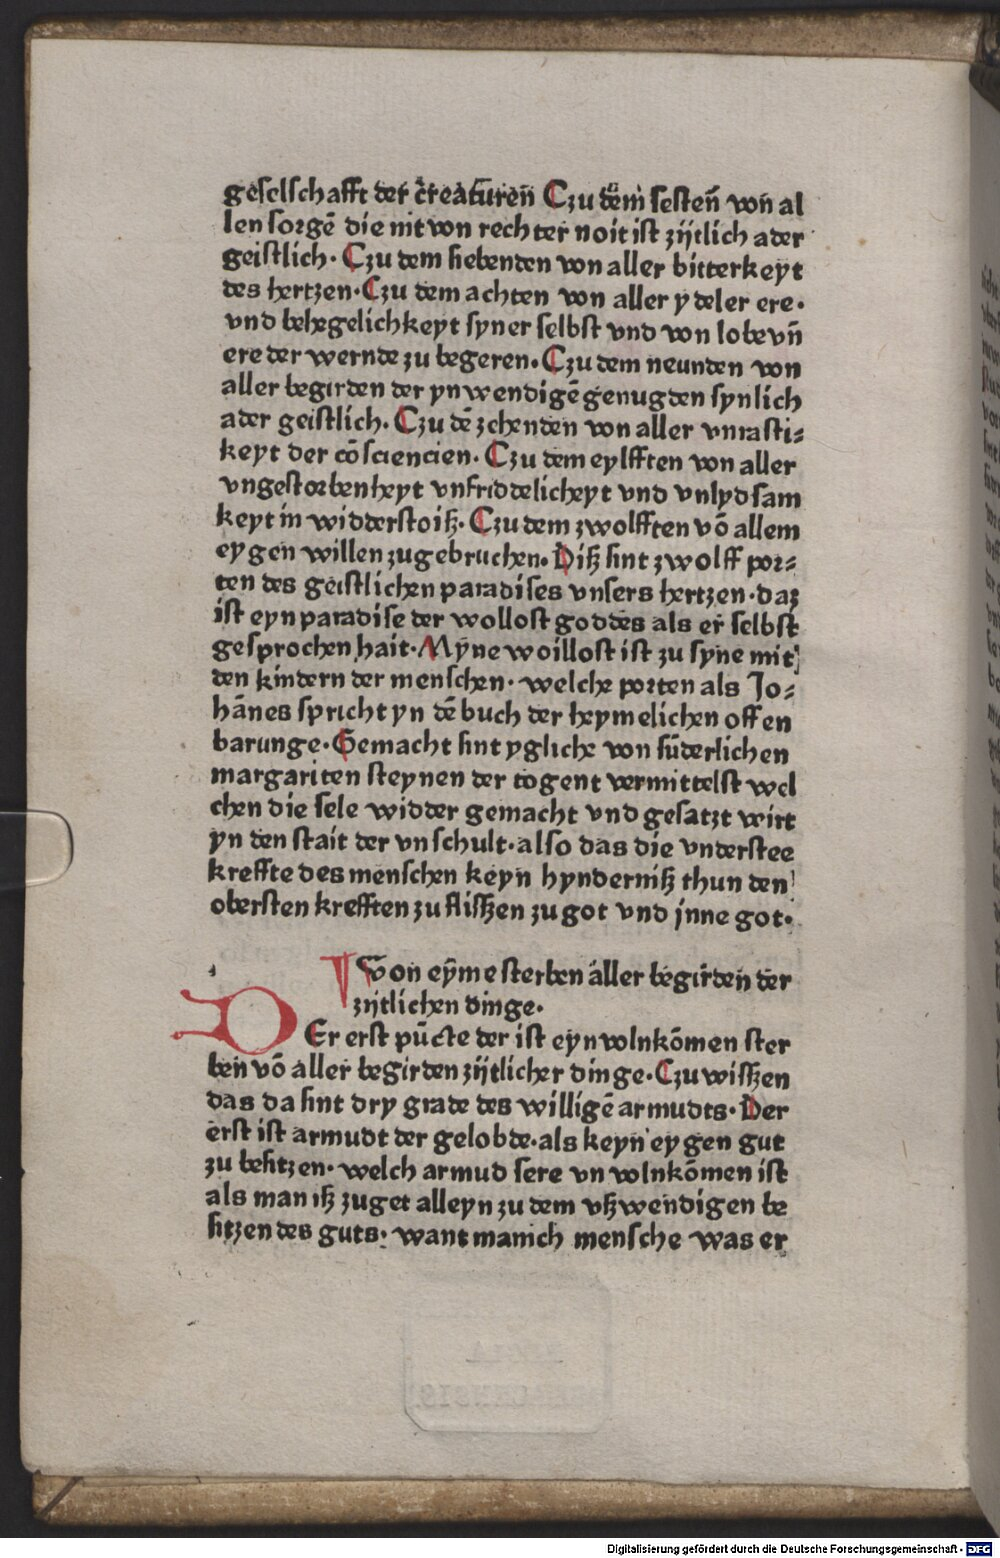 geselschafft der creaturen̄ Czu dem sesten̄ von al
len sorgē die nit von rechter noit ist zijtlich ader
geistlich· Czu dem siebenden von aller bitterkeyt
des hertzen· Czu dem achten von aller ydeler ere·
vnd behegelichkeyt syner selbst vnd von lobe vn̄
ere der wernde zu begeren· Czu dem neunden von
aller begirden der ynwendigē genugden synlich
ader geistlich· Czu dē zehenden von aller vnrasti⸗
keyt der cōsciencien· Czu dem eylfften von aller
vngestorbenheyt vnfriddelicheyt vnd vnlydsam
keyt in widderstoiß· Czu dem zwolfften vō allem
eygen willen zugebruchen· Diß sint zwolff por⸗
ten des geistlichen paradises vnsers hertzen· daz
ist eyn paradise der wollost goddes als er selbst
gesprochen hait· Myne woillost ist zu syne mit
den kindern der menschen· welche porten als Jo⸗
hānes spricht yn dē buch der heymelichen offen
barunge· Gemacht sint ygliche von sūderlichen
margariten steynen der togent vermittelst wel
chen die sele widder gemacht vnd gesatzt wirt
yn den stait der vnschult· also das die vnderstee
kreffte des menschen keyn hynderniß thun den
obersten krefften zu flißzen zu got vnd jnne got·
Von eȳme sterben aller begirden der
zijtlichen dinge·
DEr erst pūcte der ist eyn volnkōmen ster
ben vō aller begirden zijtlicher dinge· Czu wißzen
das da sint dry grade des willigē armudts· Der
erst ist armudt der gelobde· als keyn eygen gut
zu besitzen· welch armud sere vnvolnkōmen ist
als man iß zuget alleyn zu dem vßwendigen be
sitzen des guts· want manich mensche was er
Digitalisierung gefördert durch die Deutsche Forschungsgemeinschaft - DFG